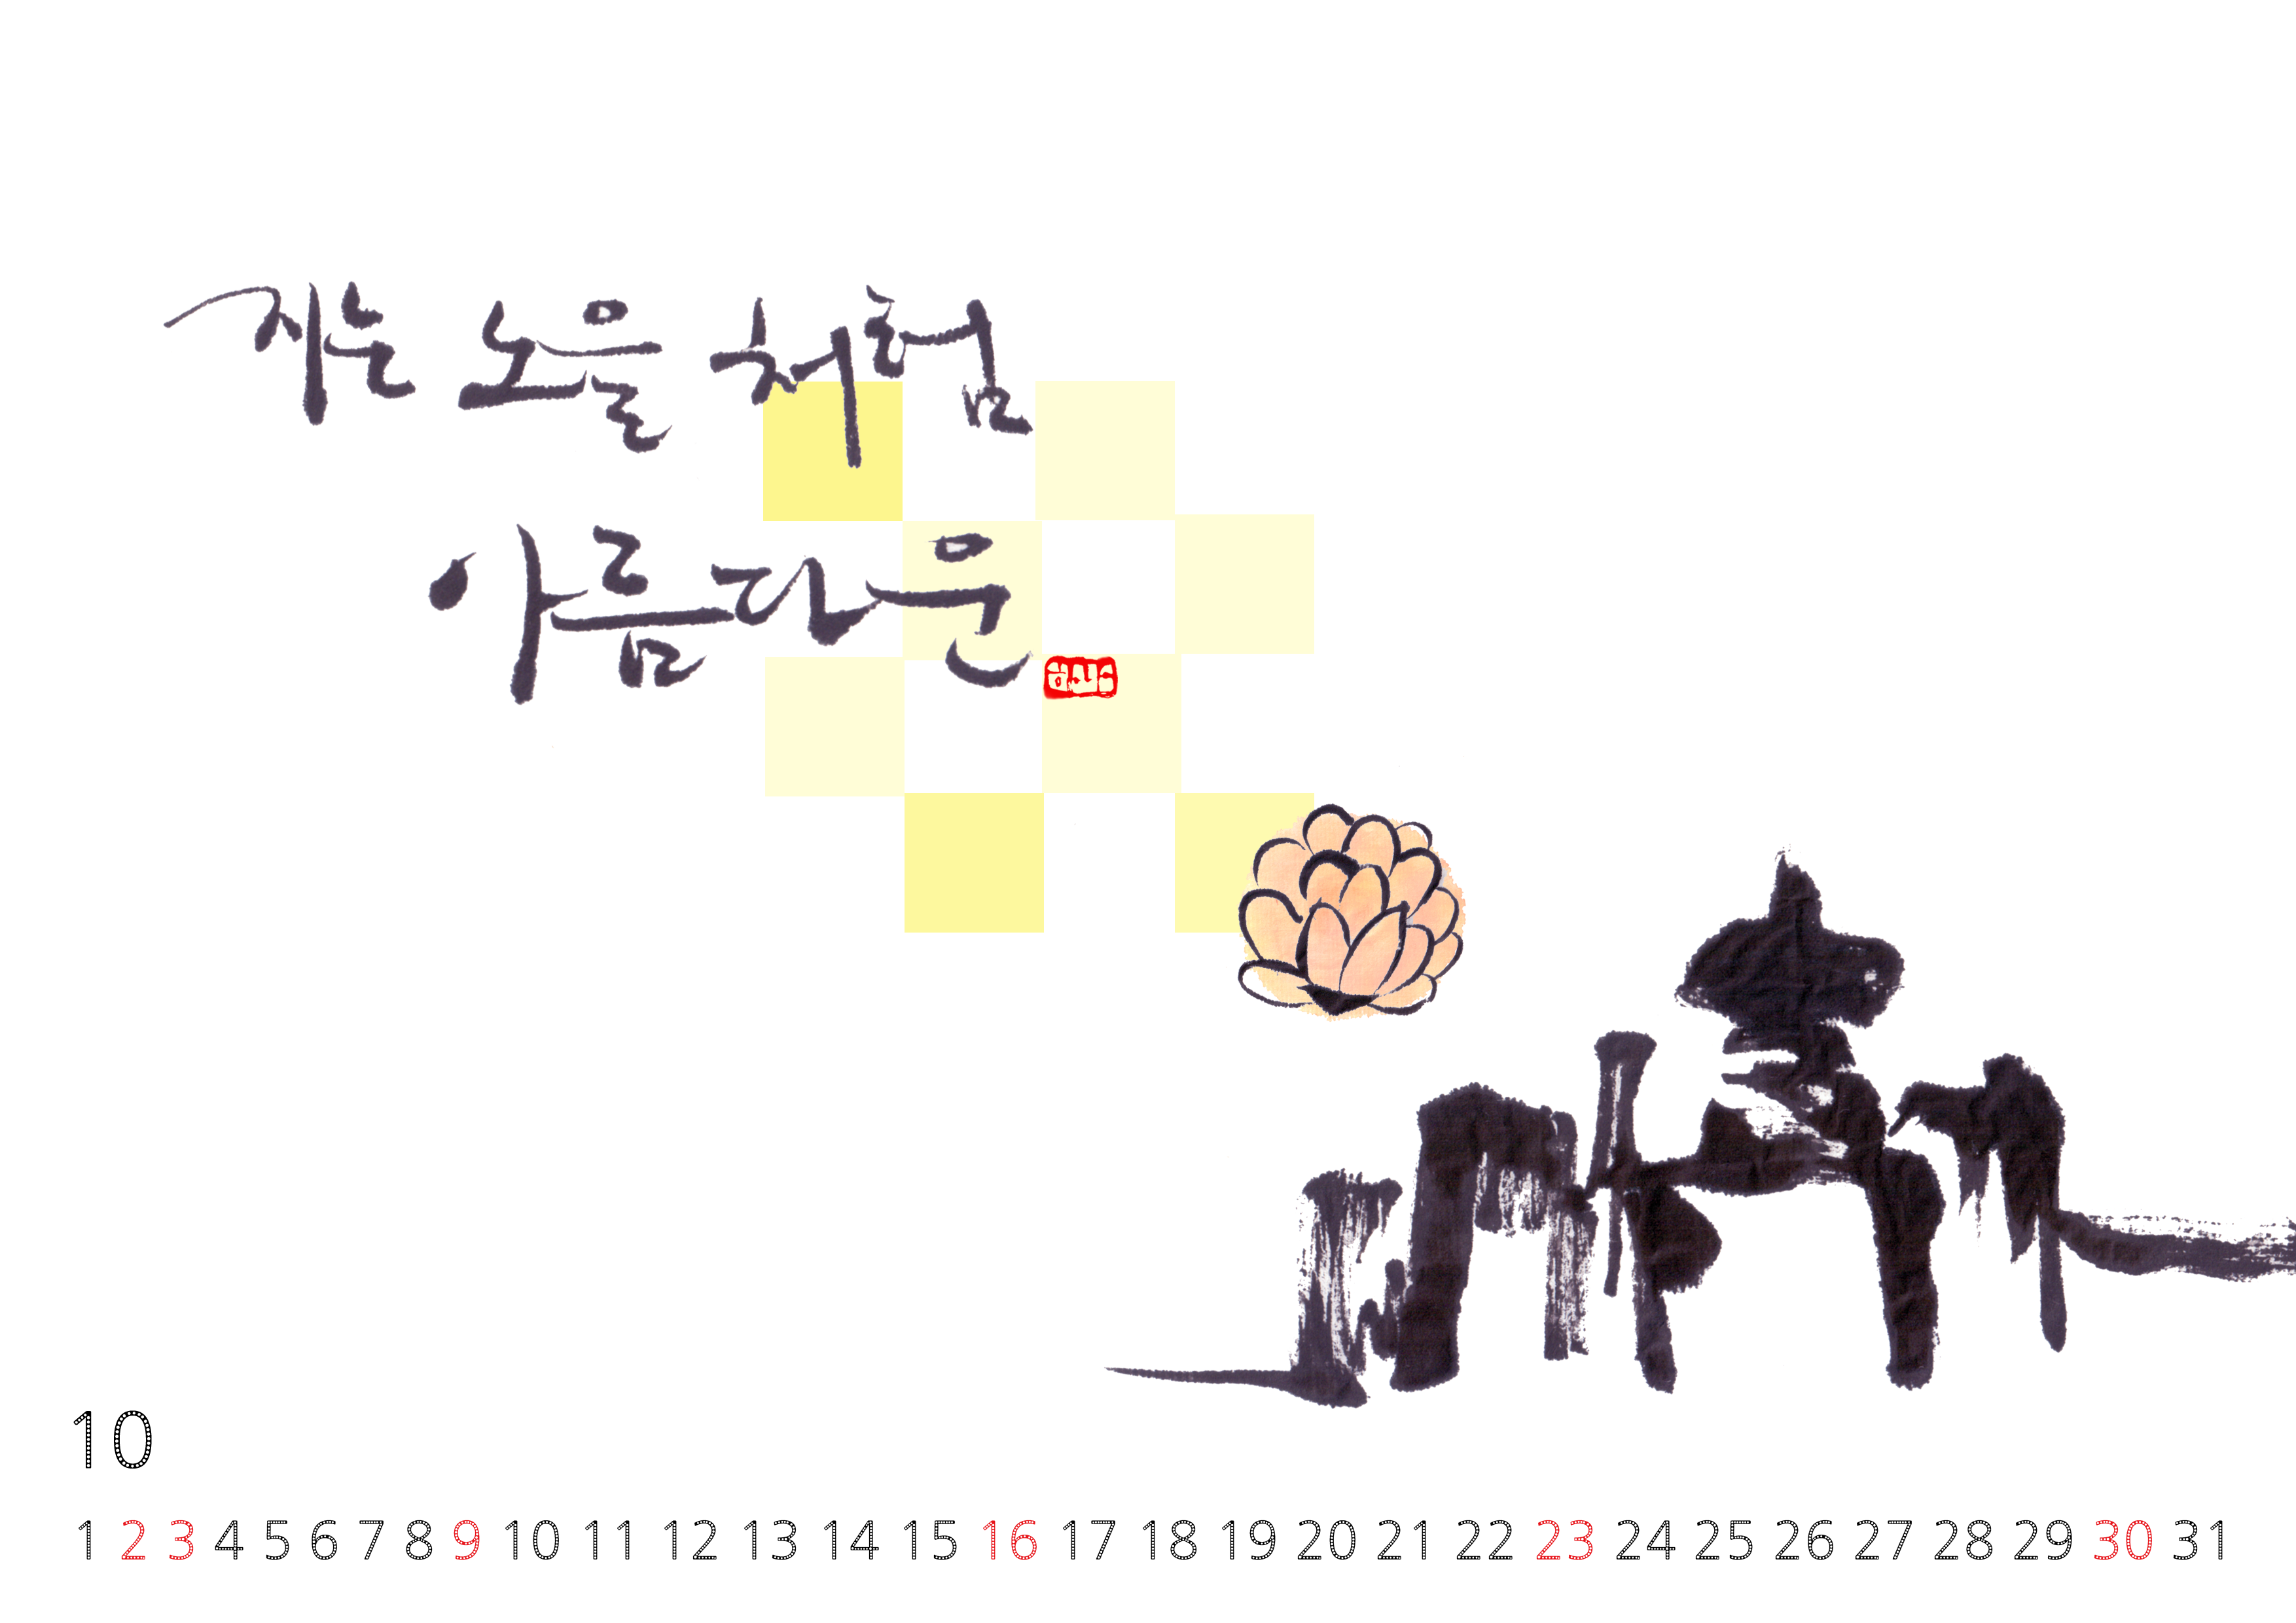 지는 노을처럼
아름다운
10
1 2 3 4 5 6 7 8 9 10 11 12 13 14 15 16 17 18 19 20 21 22 23 24 25 26 27 28 29 30 31